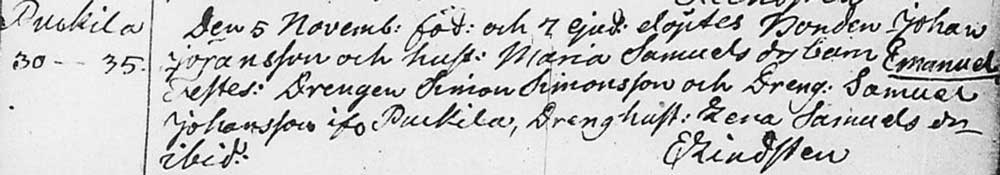 Puckila
30 — 35.
Den 5 Novemb: föd: och 7 ejud: döptes Bonden Johan
Johansson och hust: Maria Samuels dr barn Emanuel
Testes: Drengen Simon Simonsson och Dreng: Samuel
Johansson ifr Puckila, Dreng hust: Lena Samuels dr
ibid:
E Lindsten